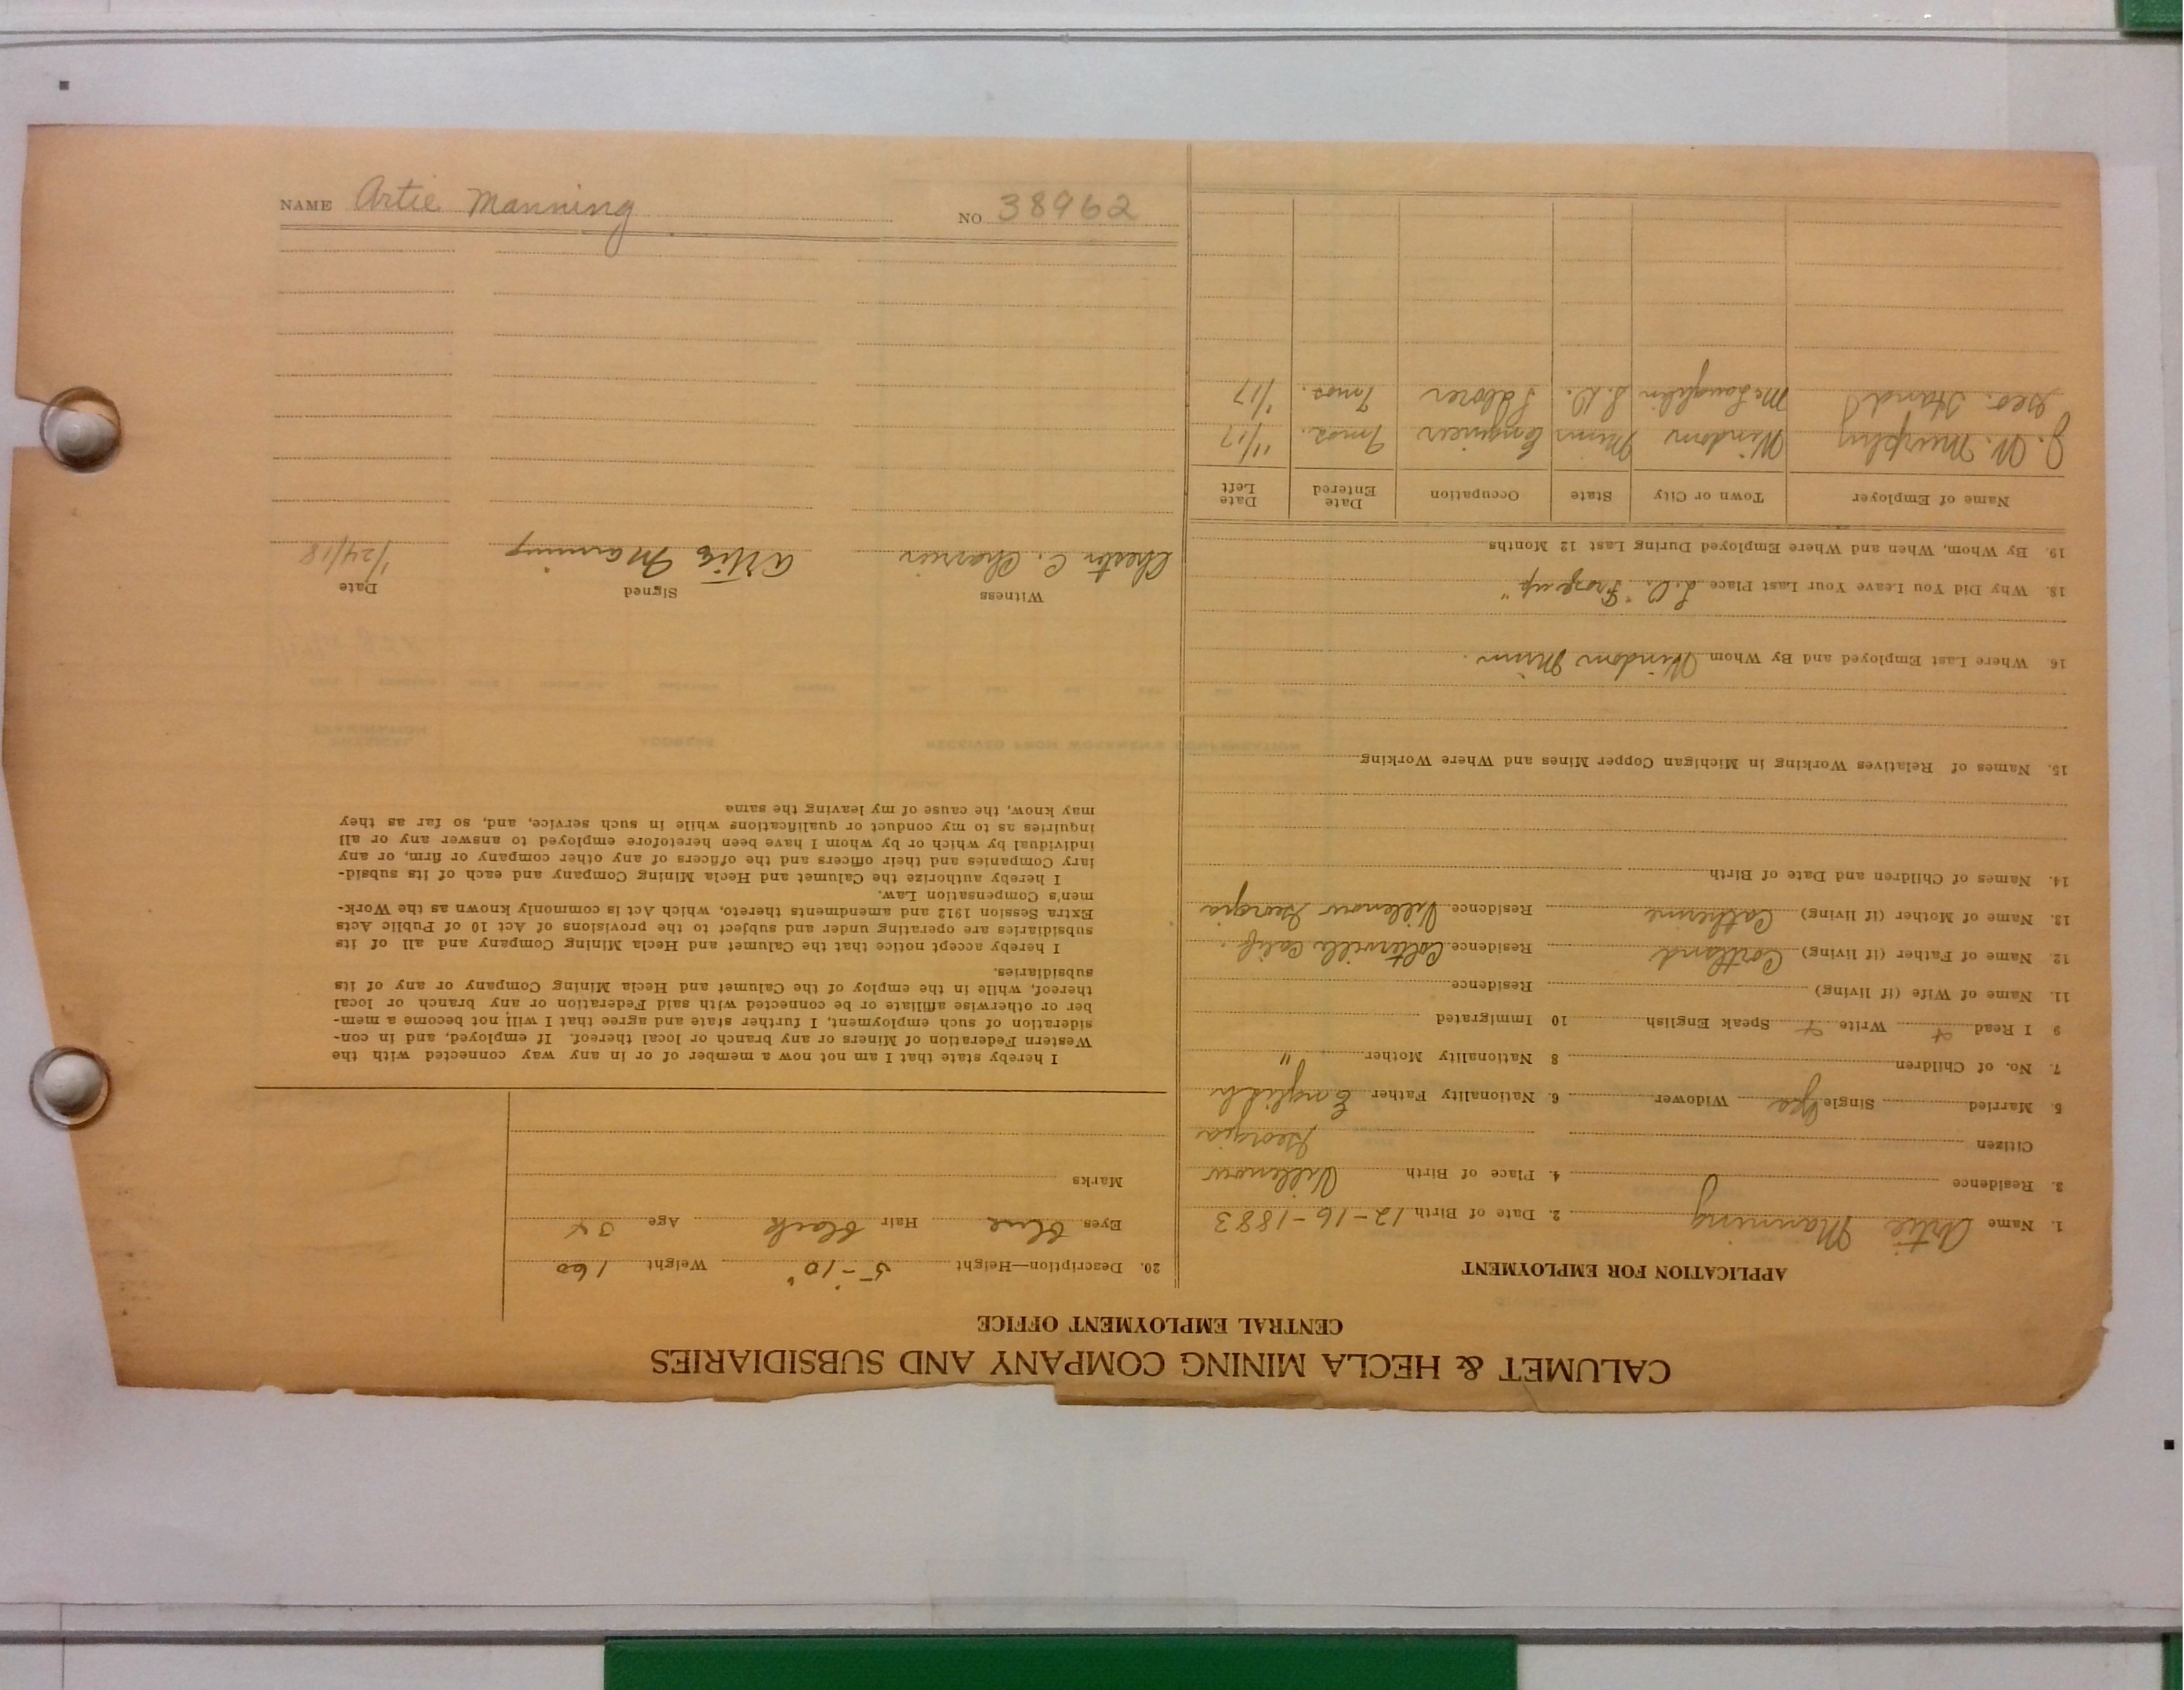 CALUMET & HECLA MINING COMPANY AND SUBSIDIARIES
CENTRAL EMPLOYMENT OFFICE
APPLICATION FOR EMPLOYMENT
1. Name Artie Manning 2. Date of Birth 12-16-1883
3. Residence 4. Place of Birth Villenow
Citizen Georgia
5. Married Single Yes Widower 6. Nationality Father English
7. No. of Children 8 Nationality Mother "
9 I Read Write Speak English 10 Immigrated
11. Name of Wife (if living) Residence
12. Name of Father (if living) Cortland Residence Colterville Calif.
13. Name of Mother (if living) Catherine Residence Villenow Georgia
14. Names of Children and Date of Birth
15. Names of Relatives Working in Michigan Copper Mines and Where Working
16. Where Last Employed and By Whom Windom Minn.
18. Why Did You Leave Your Last Place "Froze up"
19. By Whom, When and Where Employed During Last 12 Months
Name of Employer Town or City State Occupation Date Entered Date Left
J. W. Murphy Windom Minn Engineer 7mos. 11/17
Geo. Hand McLaughlin S.D. Laborer 7mos. 1/17
20. Description—Height 5-10" Weight 160
Eyes blue Hair black Age 34
Marks
I hereby state that I am not now a member of or in any way connected with the
Western Federation of Miners or any branch or local thereof. If employed, and in con-
sideration of such employment, I further state and agree that I will not become a mem-
ber or otherwise affiliate or be connected with said Federation or any branch or local
thereof, while in the employ of the Calumet and Hecla Mining Company or any of its
subsidiaries.
I hereby accept notice that the Calumet and Hecla Mining Company and all of its
subsidiaries are operating under and subject to the provisions of Act 10 of Public Acts
Extra Session 1912 and amendments thereto, which Act is commonly known as the Work-
men's Compensation Law.
I hereby authorize the Calumet and Hecla Mining Company and each of its subsid-
iary Companies and their officers and the officers of any other company or firm, or any
individual by which or by whom I have been heretofore employed to answer any or all
inquiries as to my conduct or qualifications while in such service, and, so far as they
may know, the cause of my leaving the same
Witness Signed Date
Chester C. Charrier Artie Manning 1/24/18
NAME Artie Manning NO 38962